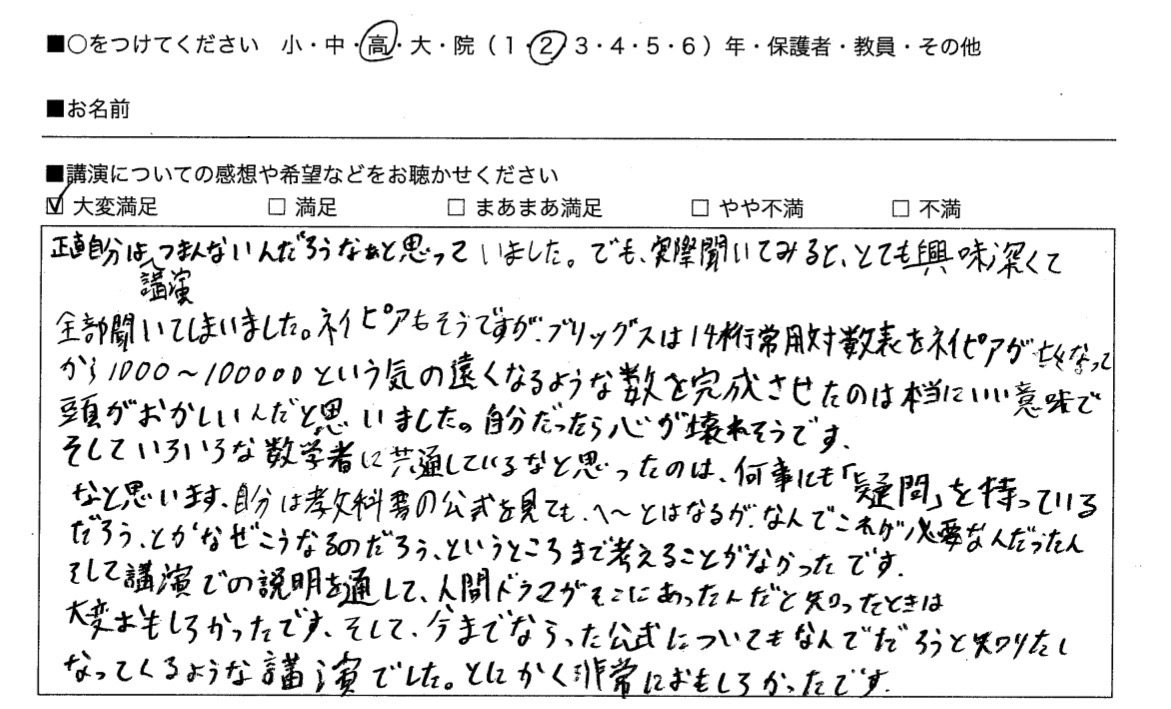 ■○をつけてください 小・中・高・大・院(1・2・3・4・5・6)年・保護者・教員・その他
■お名前
■講演についての感想や希望などをお聴かせください
☑ 大変満足 □ 満足 □ まあまあ満足 □ やや不満 □ 不満
正直自分は、つまんないんだろうなぁと思っていました。でも、実際聞いてみると、とても興味深くて
講演
全部聞いてしまいました。ネイピアもそうですが、ブリッグスは14桁常用対数表をネイピアが亡くなって
から1000~100000という気の遠くなるような数を完成させたのは本当にいい意味で
頭がおかしいんだと思いました。自分だったら心が壊れそうです。
そしていろいろな数学者に共通しているなと思ったのは、何事にも「疑問」を持っている
なと思います。自分は教科書の公式を見ても、へ~とはなるが、なんでこれが必要なんだったん
だろう、とかなぜこうなるのだろう、というところまで考えることがなかったです。
そして講演での説明を通して、人間ドラマがそこにあったんだと知ったときは
大変おもしろかったです、そして、今までならった公式についてもなんでだろうと知りたく
なってくるような講演でした。とにかく非常におもしろかったです。